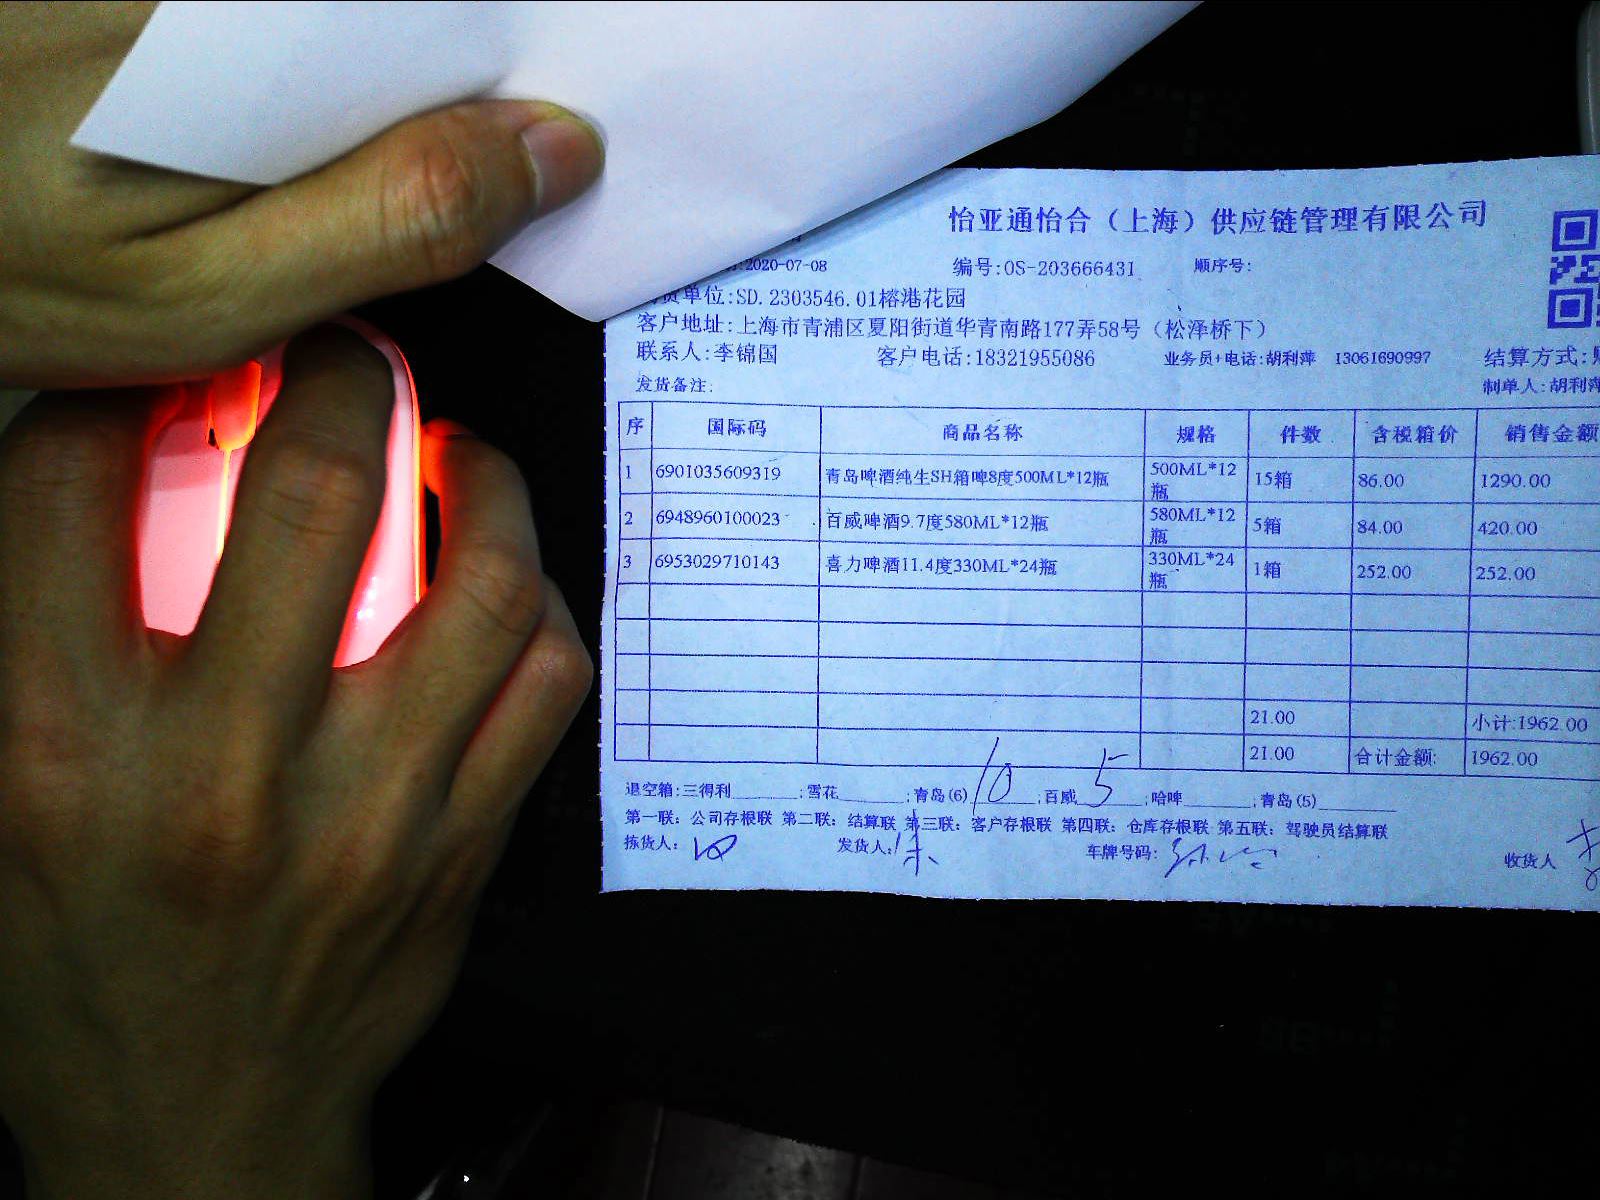 怡亚通怡合（上海）供应链管理有限公司
:2020-07-08 编号:OS-203666431 顺序号:
货单位:SD.2303546.01榕港花园
客户地址:上海市青浦区夏阳街道华青南路177弄58号（松泽桥下）
联系人:李锦国 客户电话:18321955086 业务员+电话:胡利萍 13061690997 结算方式:
发货备注: 制单人:胡利萍
序 国际码 商品名称 规格 件数 含税箱价 销售金额
1 6901035609319 青岛啤酒纯生SH箱啤8度500ML*12瓶 500ML*12瓶 15箱 86.00 1290.00
2 6948960100023 百威啤酒9.7度580ML*12瓶 580ML*12瓶 5箱 84.00 420.00
3 6953029710143 喜力啤酒11.4度330ML*24瓶 330ML*24瓶 1箱 252.00 252.00
21.00 小计:1962.00
21.00 合计金额: 1962.00
退空箱:三得利________;雪花________;青岛(6) 10 ;百威 5 ;哈啤________;青岛(5)________
第一联：公司存根联 第二联：结算联 第三联：客户存根联 第四联：仓库存根联 第五联：驾驶员结算联
拣货人: 发货人: 车牌号码: 收货人